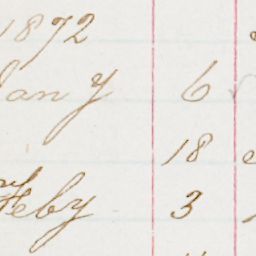 1872
Jany 6
18
Feby 3